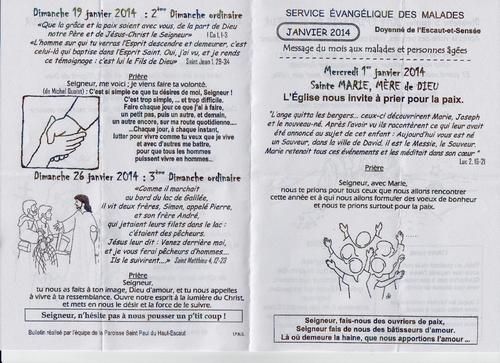 Dimanche 19 janvier 2014 : 2ème Dimanche ordinaire
«Que la grâce et la paix soient avec vous, de la part de Dieu
notre Père et de Jésus-Christ le Seigneur» I Co.1, 1-3
«L'homme sur qui tu verras l'Esprit descendre et demeurer, c'est
celui-là qui baptise dans l'Esprit Saint. Oui, j'ai vu, et je rends
ce témoignage : c'est lui le Fils de Dieu» Saint Jean 1, 29-34
Prière
Seigneur, me voici ; je viens faire ta volonté.
(de Michel Quoist) : C'est si simple ce que tu désires de moi, Seigneur !
C'est trop simple, ... et trop difficile.
Faire chaque jour ce que j'ai à faire,
un petit pas, puis un autre, et demain,
un autre encore, sur ma route quotidienne...
...Chaque jour, à chaque instant,
lutter pour vivre comme tu veux que je vive
et avec d'autres me battre,
pour que tous les hommes
puissent vivre en hommes...
Dimanche 26 janvier 2014 : 3ème Dimanche ordinaire
«Comme il marchait
au bord du lac de Galilée,
il vit deux frères, Simon, appelé Pierre,
et son frère André,
qui jetaient leurs filets dans le lac :
c'étaient des pêcheurs.
Jésus leur dit : Venez derrière moi,
et je vous ferai pêcheurs d'hommes...
Ils le suivirent...» Saint Matthieu 4, 12-23
Prière
Seigneur,
tu nous as faits à ton image, Dieu d'amour, et tu nous appelles
à vivre à ta ressemblance. Ouvre notre esprit à la lumière du Christ,
et mets en nous le désir et la force de le suivre.
Seigneur, n'hésite pas à nous pousser un p'tit coup !
Bulletin réalisé par l'équipe de la Paroisse Saint Paul du Haut-Escaut
SERVICE ÉVANGÉLIQUE DES MALADES
JANVIER 2014
Doyenné de l'Escaut-et-Sensée
Message du mois aux malades et personnes âgées
Mercredi 1er janvier 2014
Sainte MARIE, MÈRE de DIEU
L'Église nous invite à prier pour la paix.
"L'ange quitta les bergers... ceux-ci découvrirent Marie, Joseph
et le nouveau-né. Après l'avoir vu ils racontèrent ce qui leur avait
été annoncé au sujet de cet enfant : Aujourd'hui vous est né
un Sauveur, dans la ville de David, il est le Messie, le Sauveur.
Marie retenait tous ces événements et les méditait dans son cœur "
Luc 2, 16-21
Prière
Seigneur, avec Marie,
nous te prions pour tous ceux que nous allons rencontrer
cette année et à qui nous allons formuler des voeux de bonheur
et nous te prions surtout pour la paix.
Seigneur, fais-nous des ouvriers de paix,
Seigneur fais de nous des bâtisseurs d'amour.
Là où demeure la haine, que nous apportions l'amour ...